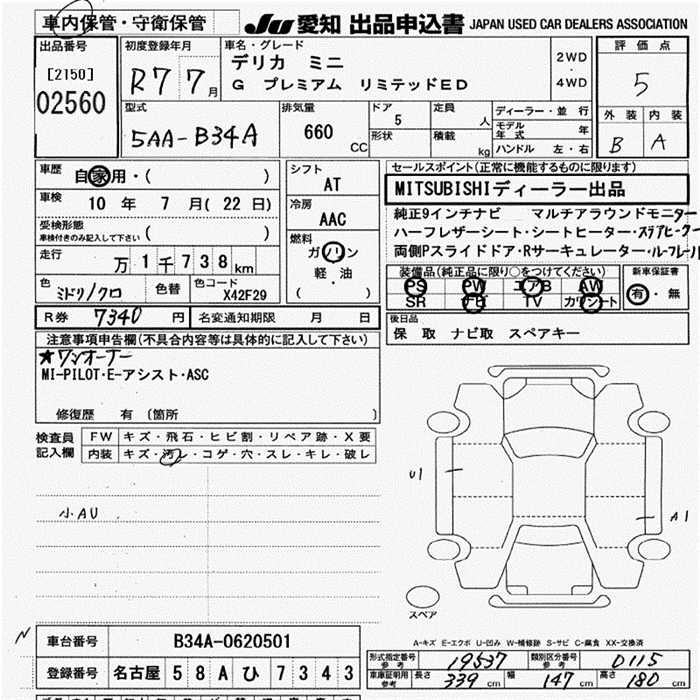 車内保管・守衛保管 JU 愛知 出品申込書 JAPAN USED CAR DEALERS ASSOCIATION
出品番号
[2150]
02560
初度登録年月
R7 7月
車名・グレード
デリカ ミニ
G プレミアム リミテッドED
2WD
・
4WD
評価点
5
外装 内装
B A
型式
5AA-B34A
排気量
660
CC
ドア
5
形状
定員
人
積載
kg
ディーラー・並行
モデル年式 年
ハンドル 左・右
車歴
自家用・( )
車検
10年 7月(22日)
受検形態
車検付きのみ記入して下さい ( )
走行
万1千738km
色
ミドリ/クロ
色替
色コード
X42F29
シフト
AT
冷房
AAC
燃料
ガソリン
軽・油
( )
R券 7340円
名変通知期限 月 日
セールスポイント(正常に機能するものに限ります)
MITSUBISHIディーラー出品
純正9インチナビ マルチアラウンドモニター
ハーフレザーシート・シートヒーター・ステアヒーター
両側Pスライドドア・Rサーキュレーター・ルーフレール
装備品(純正品に限り○をつけてください)
PS PW エアB AW
SR ナビ TV カワシート
新車保証書
有・無
後日品
保 取 ナビ取 スペアキー
注意事項申告欄(不具合内容等は具体的に記入して下さい)
★ワンオーナー
MI-PILOT・E-アシスト・ASC
修復歴 有 (箇所 )
検査員記入欄
FW キズ・飛石・ヒビ割・リペア跡・X要
内装 キズ・汚レ・コゲ・穴・スレ・キレ・破レ
小AU
U1
A1
スペア
A-キズ E-エクボ U-凹み W-補修跡 S-サビ C-腐食 XX-交換済
車台番号 B34A-0620501
登録番号 名古屋 58A ひ 7343
形式指定番号 参考 19537
類別区分番号 参考 0115
車車証明用 参考 長さ 339cm 幅 147cm 高さ 180cm